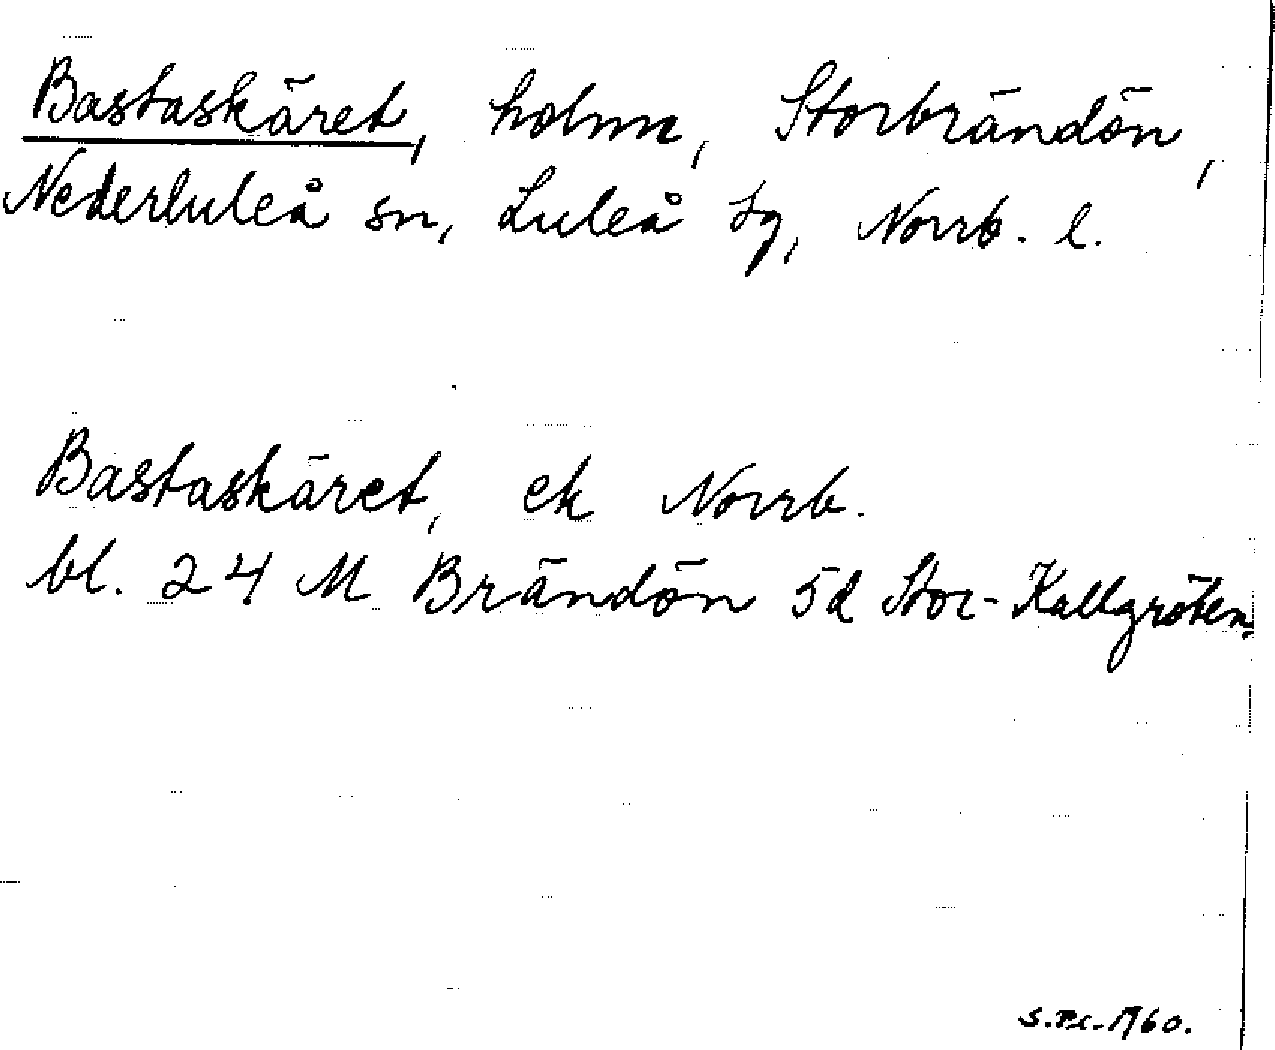 Bastaskäret, holme, Storbrändön,
Nederluleå sn, Luleå tg, Norrb. l.
Bastaskäret, ek Norrb.
bl. 24 M Brändön 5d Stor-Kallgrötan.
1960.